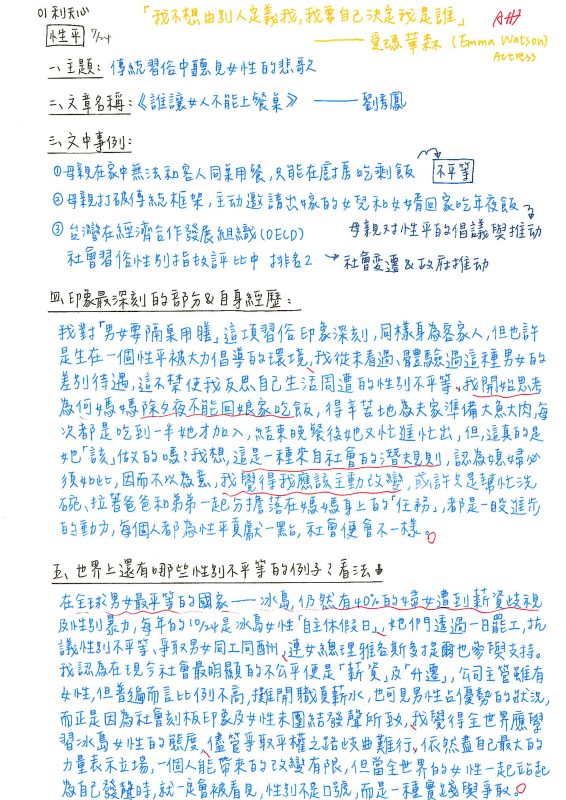 01 利夭心 「我不想由別人定義我,我要自己決定我是誰」 A++
性平 7/24 —— 愛瑪華森 (Emma Watson) Actress
一、主題: 傳統習俗中聽見女性的悲歌
二、文章名稱:《誰讓女人不能上餐桌》 —— 劉秀鳳
三、文中事例:
①母親在家中無法和客人同桌用餐,只能在廚房吃剩飯 不平等
②母親打破傳統框架,主動邀請出嫁的女兒和女婿回家吃年夜飯
母親對性平的倡議與推動
③台灣在經濟合作發展組織(OECD)
社會習俗性別指數評比中 排名2 →社會變遷&政府推動
四、印象最深刻的部分&自身經歷:
我對「男女要隔桌用膳」這項習俗印象深刻,同樣身為客家人,但也許
是生在一個性平被大力倡導的環境、我從未看過、體驗過這種男女的
差別待遇,這不禁使我反思自己生活周遭的性別不平等、我開始思考
為何媽媽除夕夜不能回娘家吃飯,得辛苦地為夫家準備大魚大肉,每
次都是吃到一半她才加入,結束晚餐後她又忙進忙出,但,這真的是
她「該」做的嗎?我想,這是一種來自社會的潛規則,認為媳婦必
須如此,因而不以為意、我覺得我應該主動改變,或許只是幫忙洗
碗、拉著爸爸和弟弟一起分擔落在媽媽身上的「任務」,都是一股進步
的動力,每個人都為性平貢獻一點,社會便會不一樣。
五、世界上還有哪些性別不平等的例子?看法
在全球男女最平等的國家——冰島,仍然有40%的婦女遭到薪資歧視
及性別暴力,每年的10/24是冰島女性「自主休假日」、她們透過一日罷工,抗
議性別不平等、爭取男女同工同酬,連女總理雅各斯多提爾也參與支持。
我認為在現今社會最明顯的不公平便是「薪資」及「升遷」,公司主管雖有
女性,但普遍而言比例不高,攤開職員薪水,也可見男性占優勢的狀況,
而正是因為社會刻板印象及女性未團結發聲所致,我覺得全世界應學
習冰島女性的態度、儘管爭取平權之路歧曲難行、依然盡自己最大的
力量表示立場,一個人能帶來的改變有限,但當全世界的女性一起站起
為自己發聲時,就一定會被看見,性別不是口號,而是一種實踐與爭取。